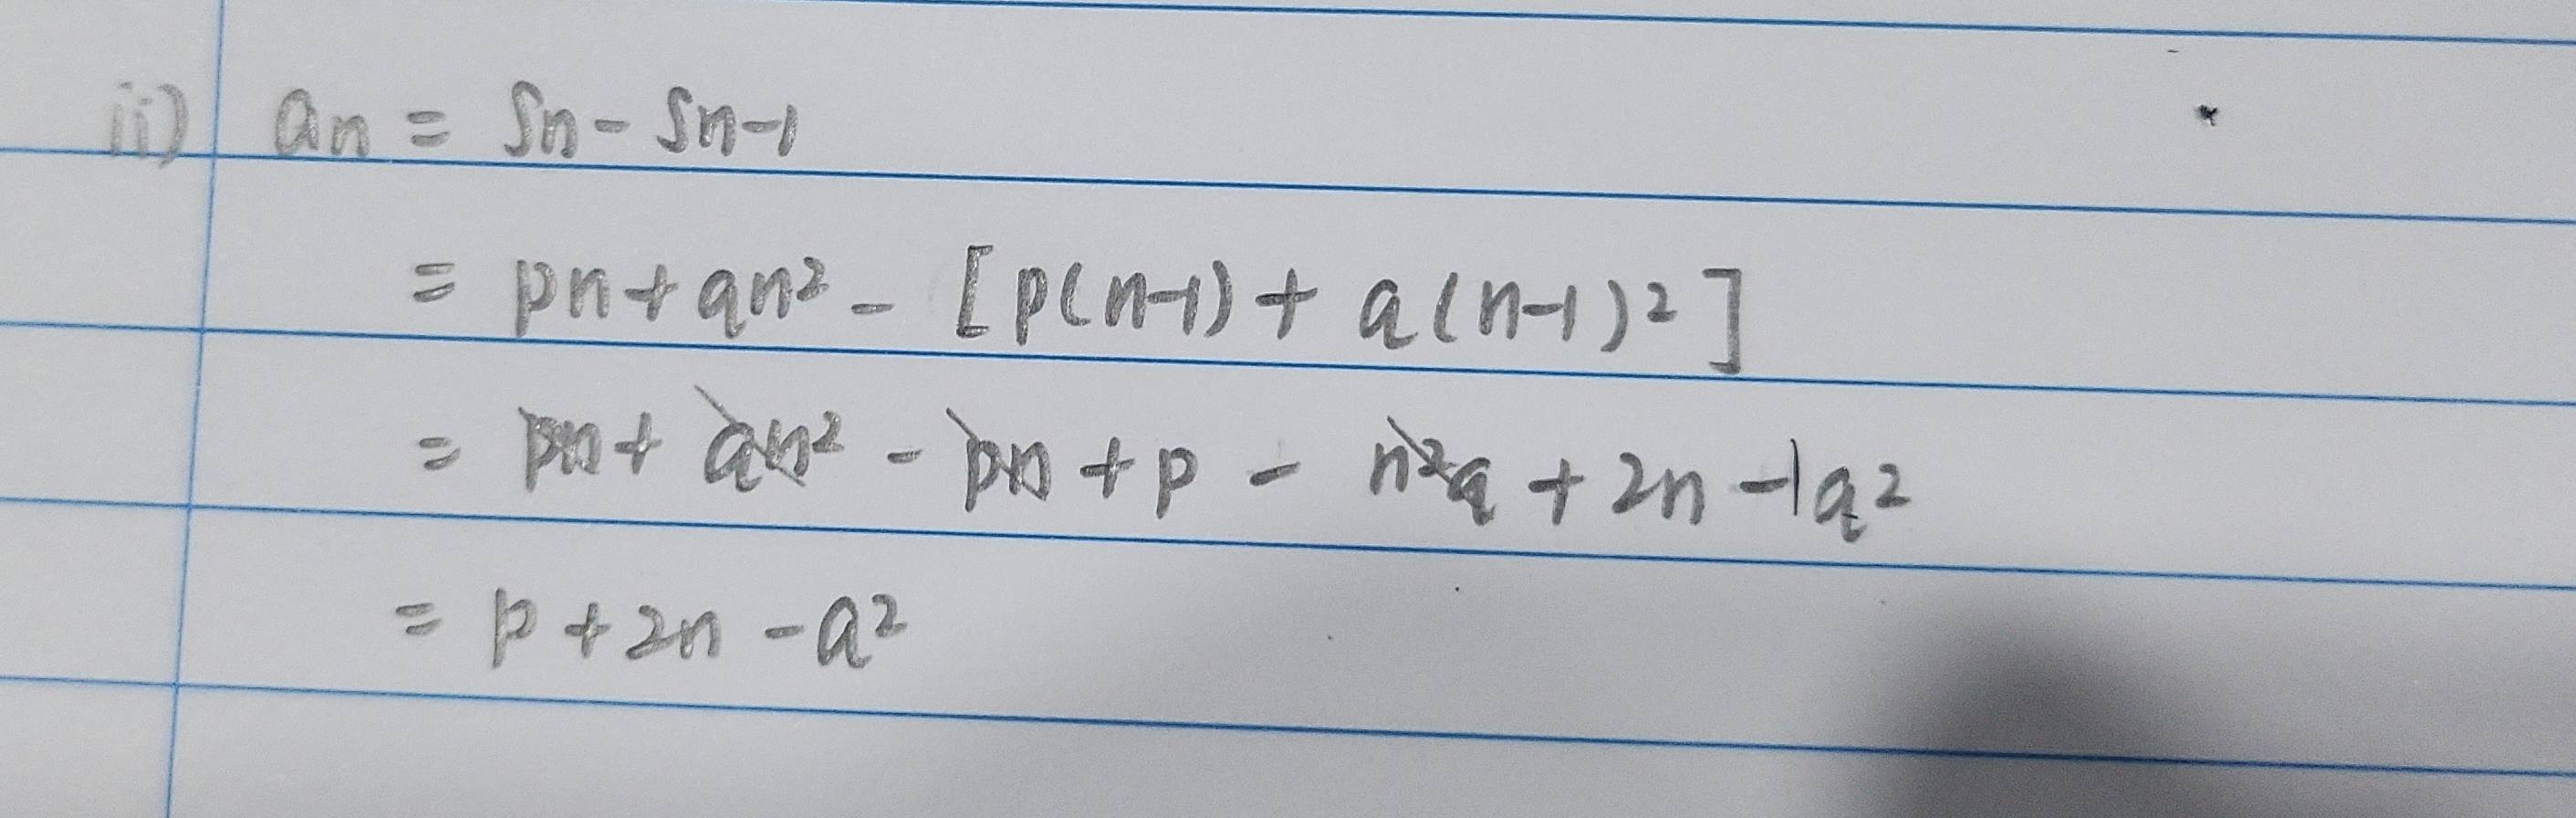 ii) an = Sn - Sn-1
= pn + qn² - [p(n-1) + q(n-1)²]
= pn + qn² - pn + p - n²q + 2n - 1q²
= p + 2n - q²